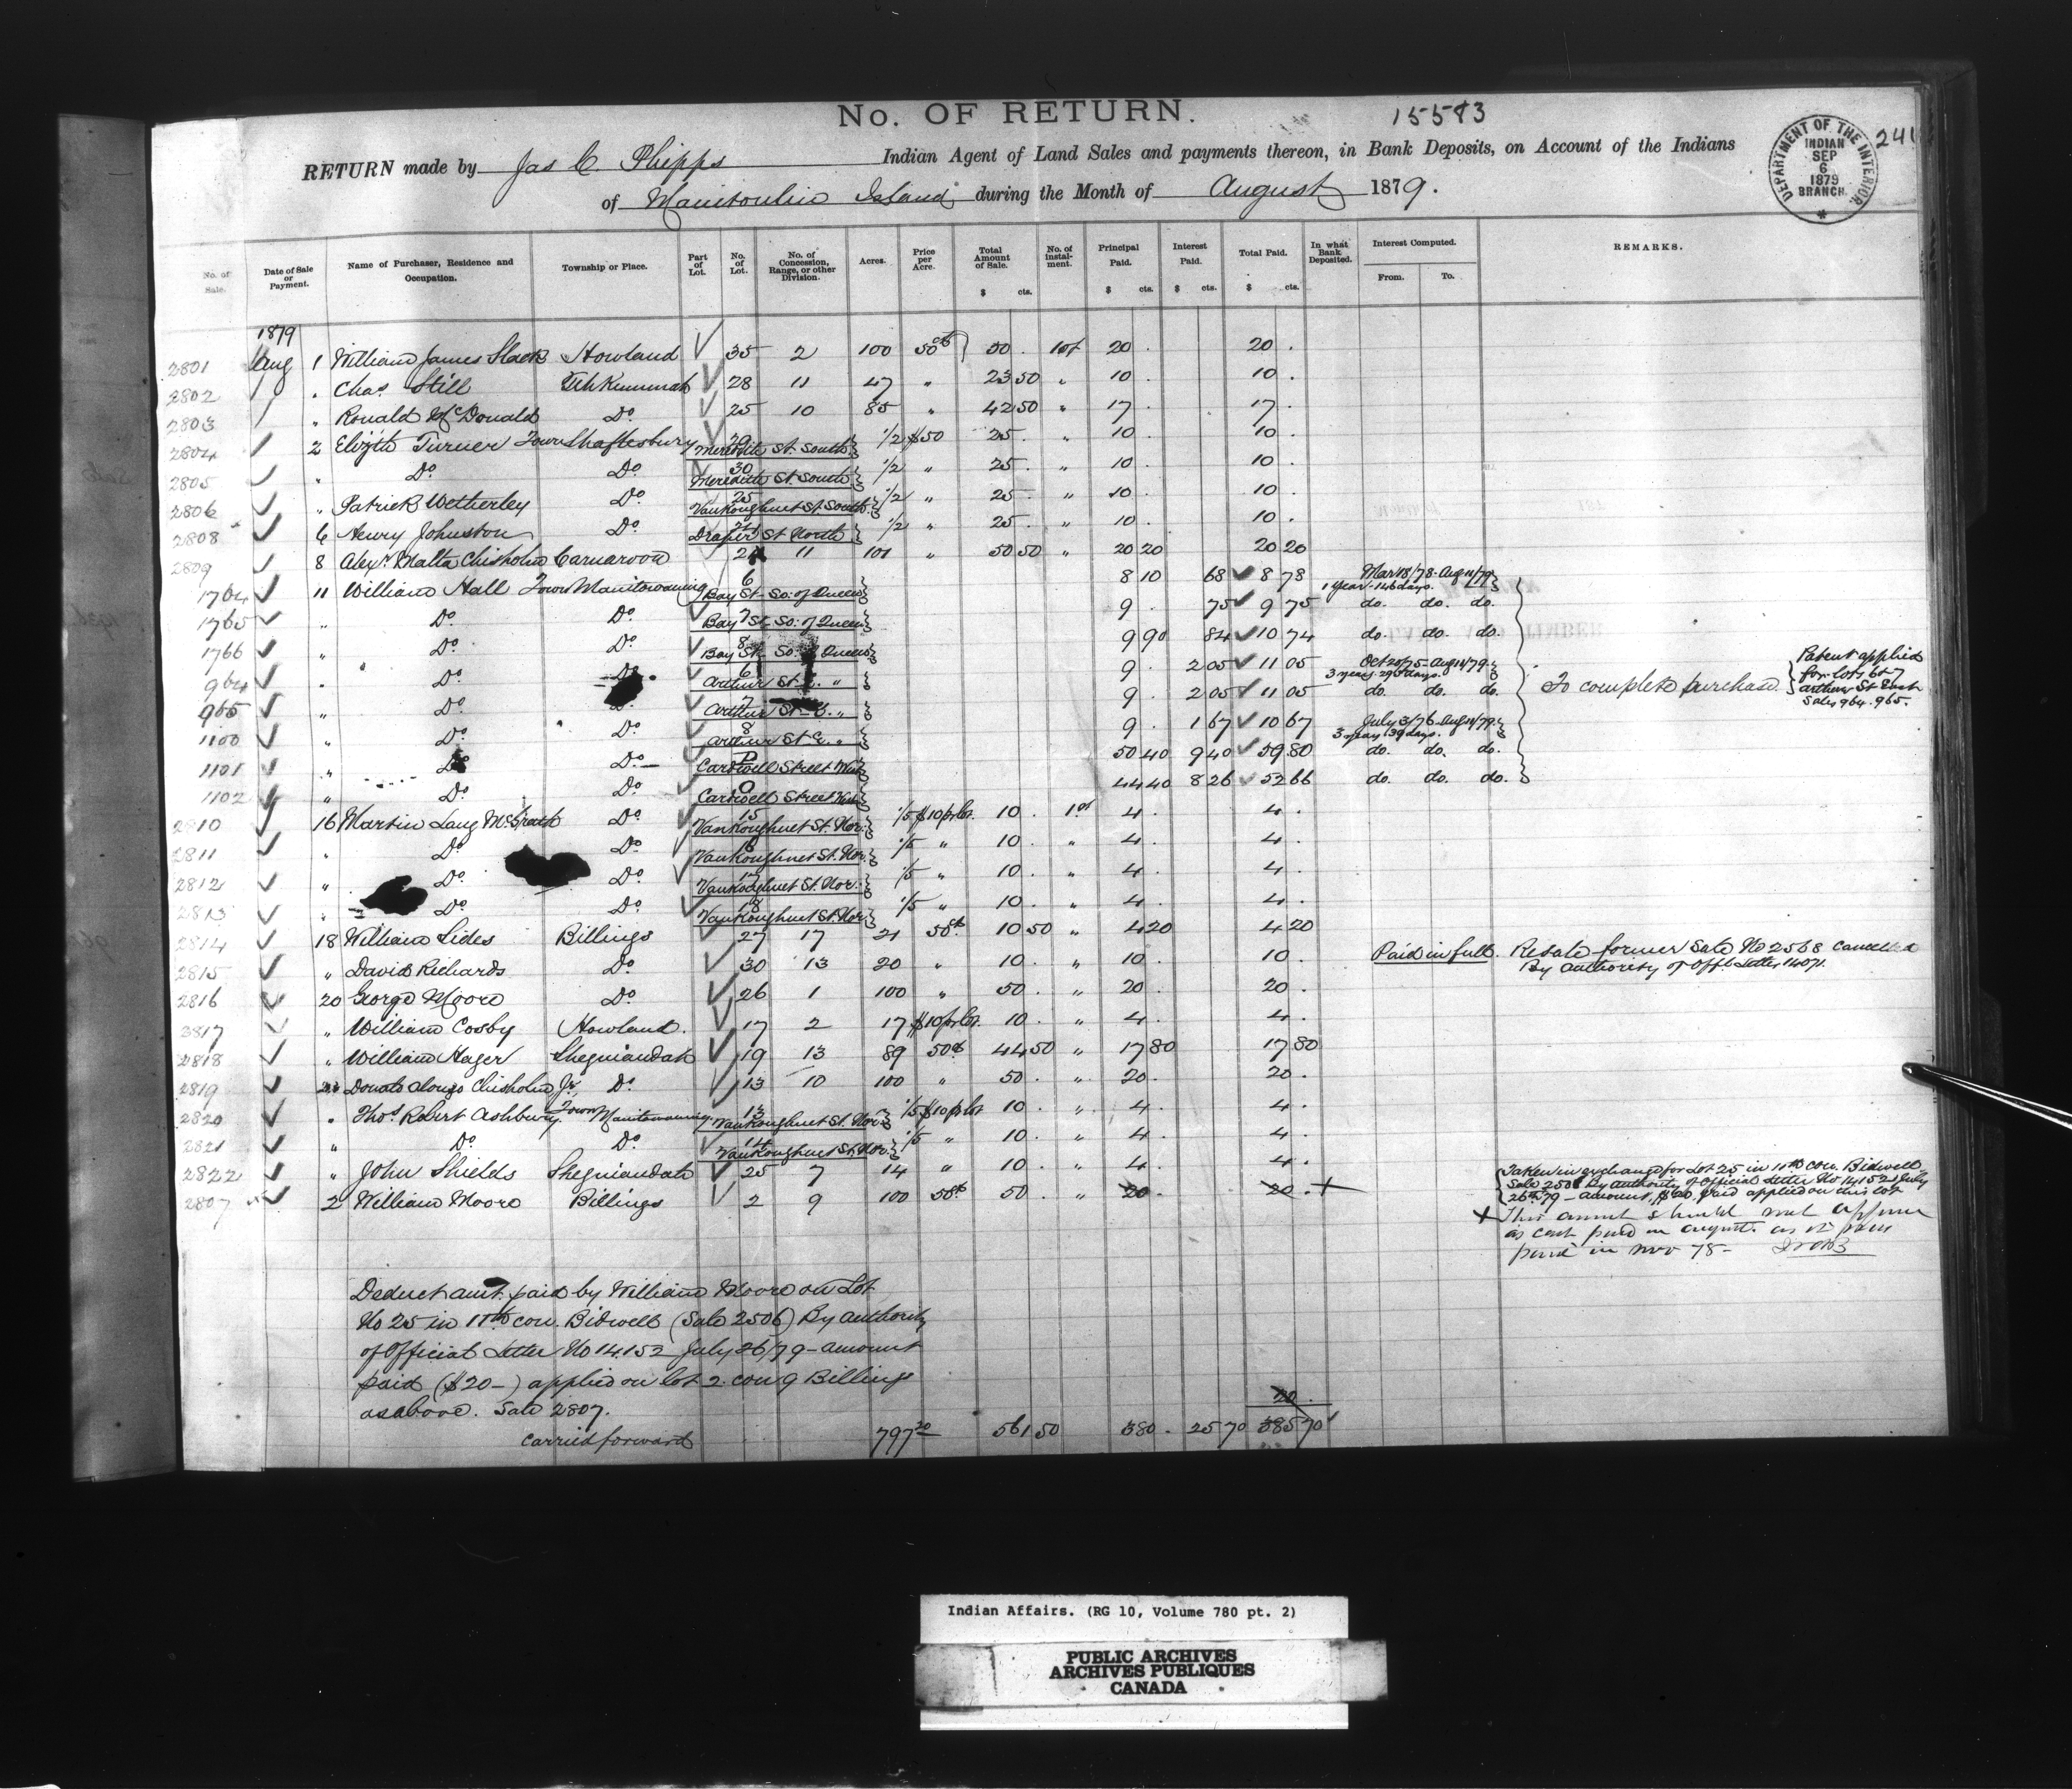 No. OF RETURN.
15583
241
DEPARTMENT OF THE INTERIOR. INDIAN SEP 6 1879 BRANCH *
RETURN made by Jas C. Phipps Indian Agent of Land Sales and payments thereon, in Bank Deposits, on Account of the Indians
of Manitoulin Island during the Month of August 1879.
No. of Sale. Date of Sale or Payment. Name of Purchaser, Residence and Occupation. Township or Place. Part of Lot. No. of Lot. No. of Concession, Range, or other Division. Acres. Price per Acre. Total Amount of Sale. No. of Instal-ment. Principal Paid. Interest Paid. Total Paid. In what Bank Deposited. Interest Computed. REMARKS.
$ cts. $ cts. $ cts. $ cts. From. To.
1879
2801 Aug 1 William James Slack Howland 35 2 100 50cts 50 . 1st 20 . 20 .
2802 " Chas. Still Tehkummah 28 11 47 " 23 50 " 10 . 10 .
2803 " Ronald McDonald Do 25 10 85 " 42 50 " 17 . 17 .
2804 2 Elizth Turner Town Shaftesbury 29 Meredith St. South 1/2 $50 25 . " 10 . 10 .
2805 " Do Do 30 Meredith St South 1/2 " 25 . " 10 . 10 .
2806 " Patrick Wetherley Do 25 VanKoughnet St. South 1/2 " 25 . " 10 . 10 .
2808 6 Henry Johnston Do Draper St North 1/2 " 25 . " 10 . 10 .
2809 8 Alexr. Malta Chisholm Carnarvon 11 101 " 50 50 " 20 20 20 20
1764 11 William Hall Town Manitowaning 6 Bay St. So: of Queen 8 10 68 8 78 Mar 18/78 - Aug 11/79 1 year 146 days.
1765 " Do Do 7 Bay St. So: of Queen 9 . 75 9 75 do. do. do.
1766 " Do Do 8 Bay St. So: of Queen 9 90 84 10 74 do. do. do.
964 " Do Do 6 Arthur St. E. " 9 . 2 05 11 05 Oct 20/75 - Aug 11/79 3 years 295 days.
965 " Do 7 Arthur St. E. " 9 . 2 05 11 05 do. do. do. To complete purchase. Patent applied for lots 6 & 7 Arthur St East Sales 964. 965.
1100 " Do Do 8 Arthur St. E. " 9 . 1 67 10 67 July 3/76 - Aug 11/79 3 years 39 days.
1101 " Do Do P Cardwell Street West 50 40 9 40 59 80 do. do. do.
1102 " Do Do O Cardwell Street West 44 40 8 26 52 66 do. do. do.
2810 16 Martin Lang McGrath Do 15 VanKoughnet St. Nor: 1/5 $10 pr lot. 10 . 1st 4 . 4 .
2811 " Do Do 16 VanKoughnet St. Nor. 1/5 " 10 . " 4 . 4 .
2812 " Do Do 17 VanKoughnet St. Nor. 1/5 " 10 . " 4 . 4 .
2813 " Do Do 18 VanKoughnet St. Nor 1/5 " 10 . " 4 . 4 .
2814 18 William Sides Billings 27 17 21 50ct. 10 50 " 4 20 4 20
2815 " David Richards Do 30 13 20 " 10 . " 10 . 10 . Paid in full. Resale former Sale No 2568 cancelled
By Authority of Offl Letter 14071.
2816 20 George Moore Do 26 1 100 " 50 . " 20 . 20 .
2817 " William Cosby Howland. 17 2 17 $10 pr lot. 10 . " 4 . 4 .
2818 " William Hager Sheguiandah 19 13 89 50ct 44 50 " 17 80 17 80
2819 Donald Alonzo Chisholm Jr. Do 13 10 100 " 50 . " 20 . 20 .
2820 " Thos. Robert Ashbury Town Manitowaning 13 VanKoughnet St. Nor: 1/5 $10 pr lot 10 . " 4 . 4 .
2821 " Do Do 14 VanKoughnet St. Nor. 1/5 " 10 . " 4 . 4 .
2822 " John Shields Sheguiandah 25 7 14 " 10 . " 4 . 4 .
2807 2 William Moore Billings 2 9 100 50ct 50 . " 20 . 20 . +
Taken in exchange for Lot 25 in 11th con. Bidwell
Sale 2506 By Authority of Official Letter No 14152 July
26th 79 - amount $20 paid applied on this lot
+ This amount should not appear
as cash paid in August. as it was
paid in Nov 78 -
Deduct amt. paid by William Moore on Lot
No 25 in 11th con. Bidwell (Sale 2506) By Authority
of Official Letter No 14.152 July 26/79 - amount
paid ($20 -) applied on lot 2. con 9 Billings
as above. Sale 2807.
20 .
carried forward 797 20 561 50 380 . 25 70 385 70
Indian Affairs. (RG 10, Volume 780 pt. 2)
PUBLIC ARCHIVES
ARCHIVES PUBLIQUES
CANADA